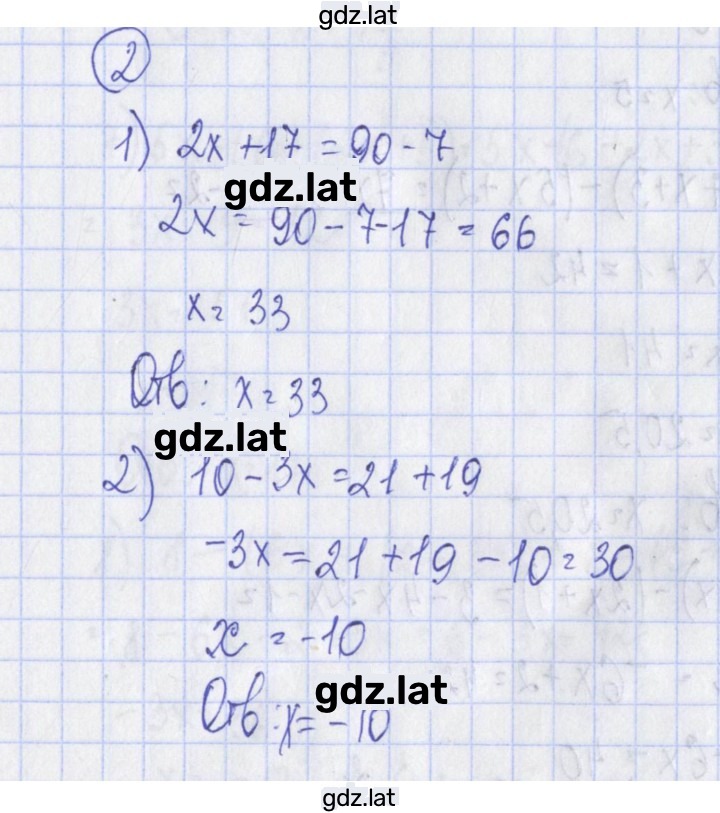 gdz.lat
2
1) 2x + 17 = 90 - 7
gdz.lat
2x = 90 - 7 - 17 = 66
x = 33
Отв: x = 33
gdz.lat
2) 10 - 3x = 21 + 19
-3x = 21 + 19 - 10 = 30
x = -10
gdz.lat
Отв: x = -10
gdz.lat